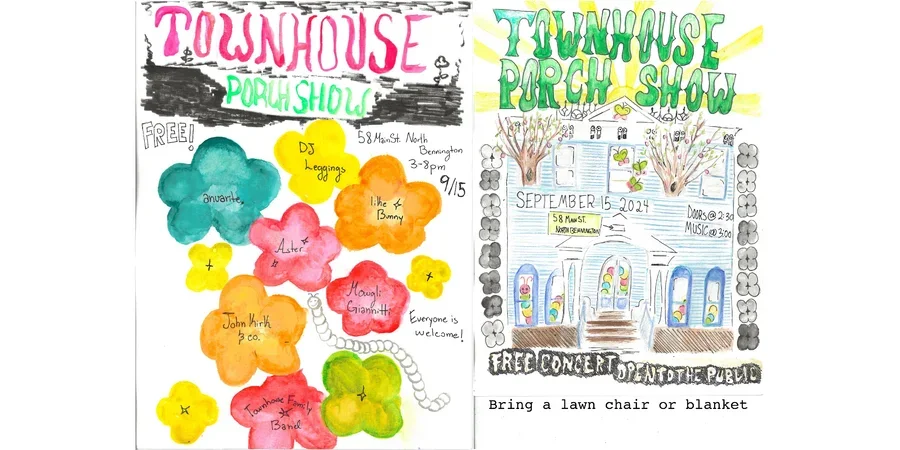 TOWNHOUSE
PORCH SHOW
FREE!
58 Main St. North
Bennington
3-8pm
9/15
DJ
Leggings
anvante,
like
Bunny
Aster
Mowgli
Giannitti
John Kirk
& co.
Everyone is
welcome!
Townhouse Family
Band
TOWNHOUSE
PORCH SHOW
SEPTEMBER 15, 2024
58 MAIN ST.
NORTH BENNINGTON
DOORS @ 2:30
MUSIC @ 3:00
FREE CONCERT OPEN TO THE PUBLIC
Bring a lawn chair or blanket